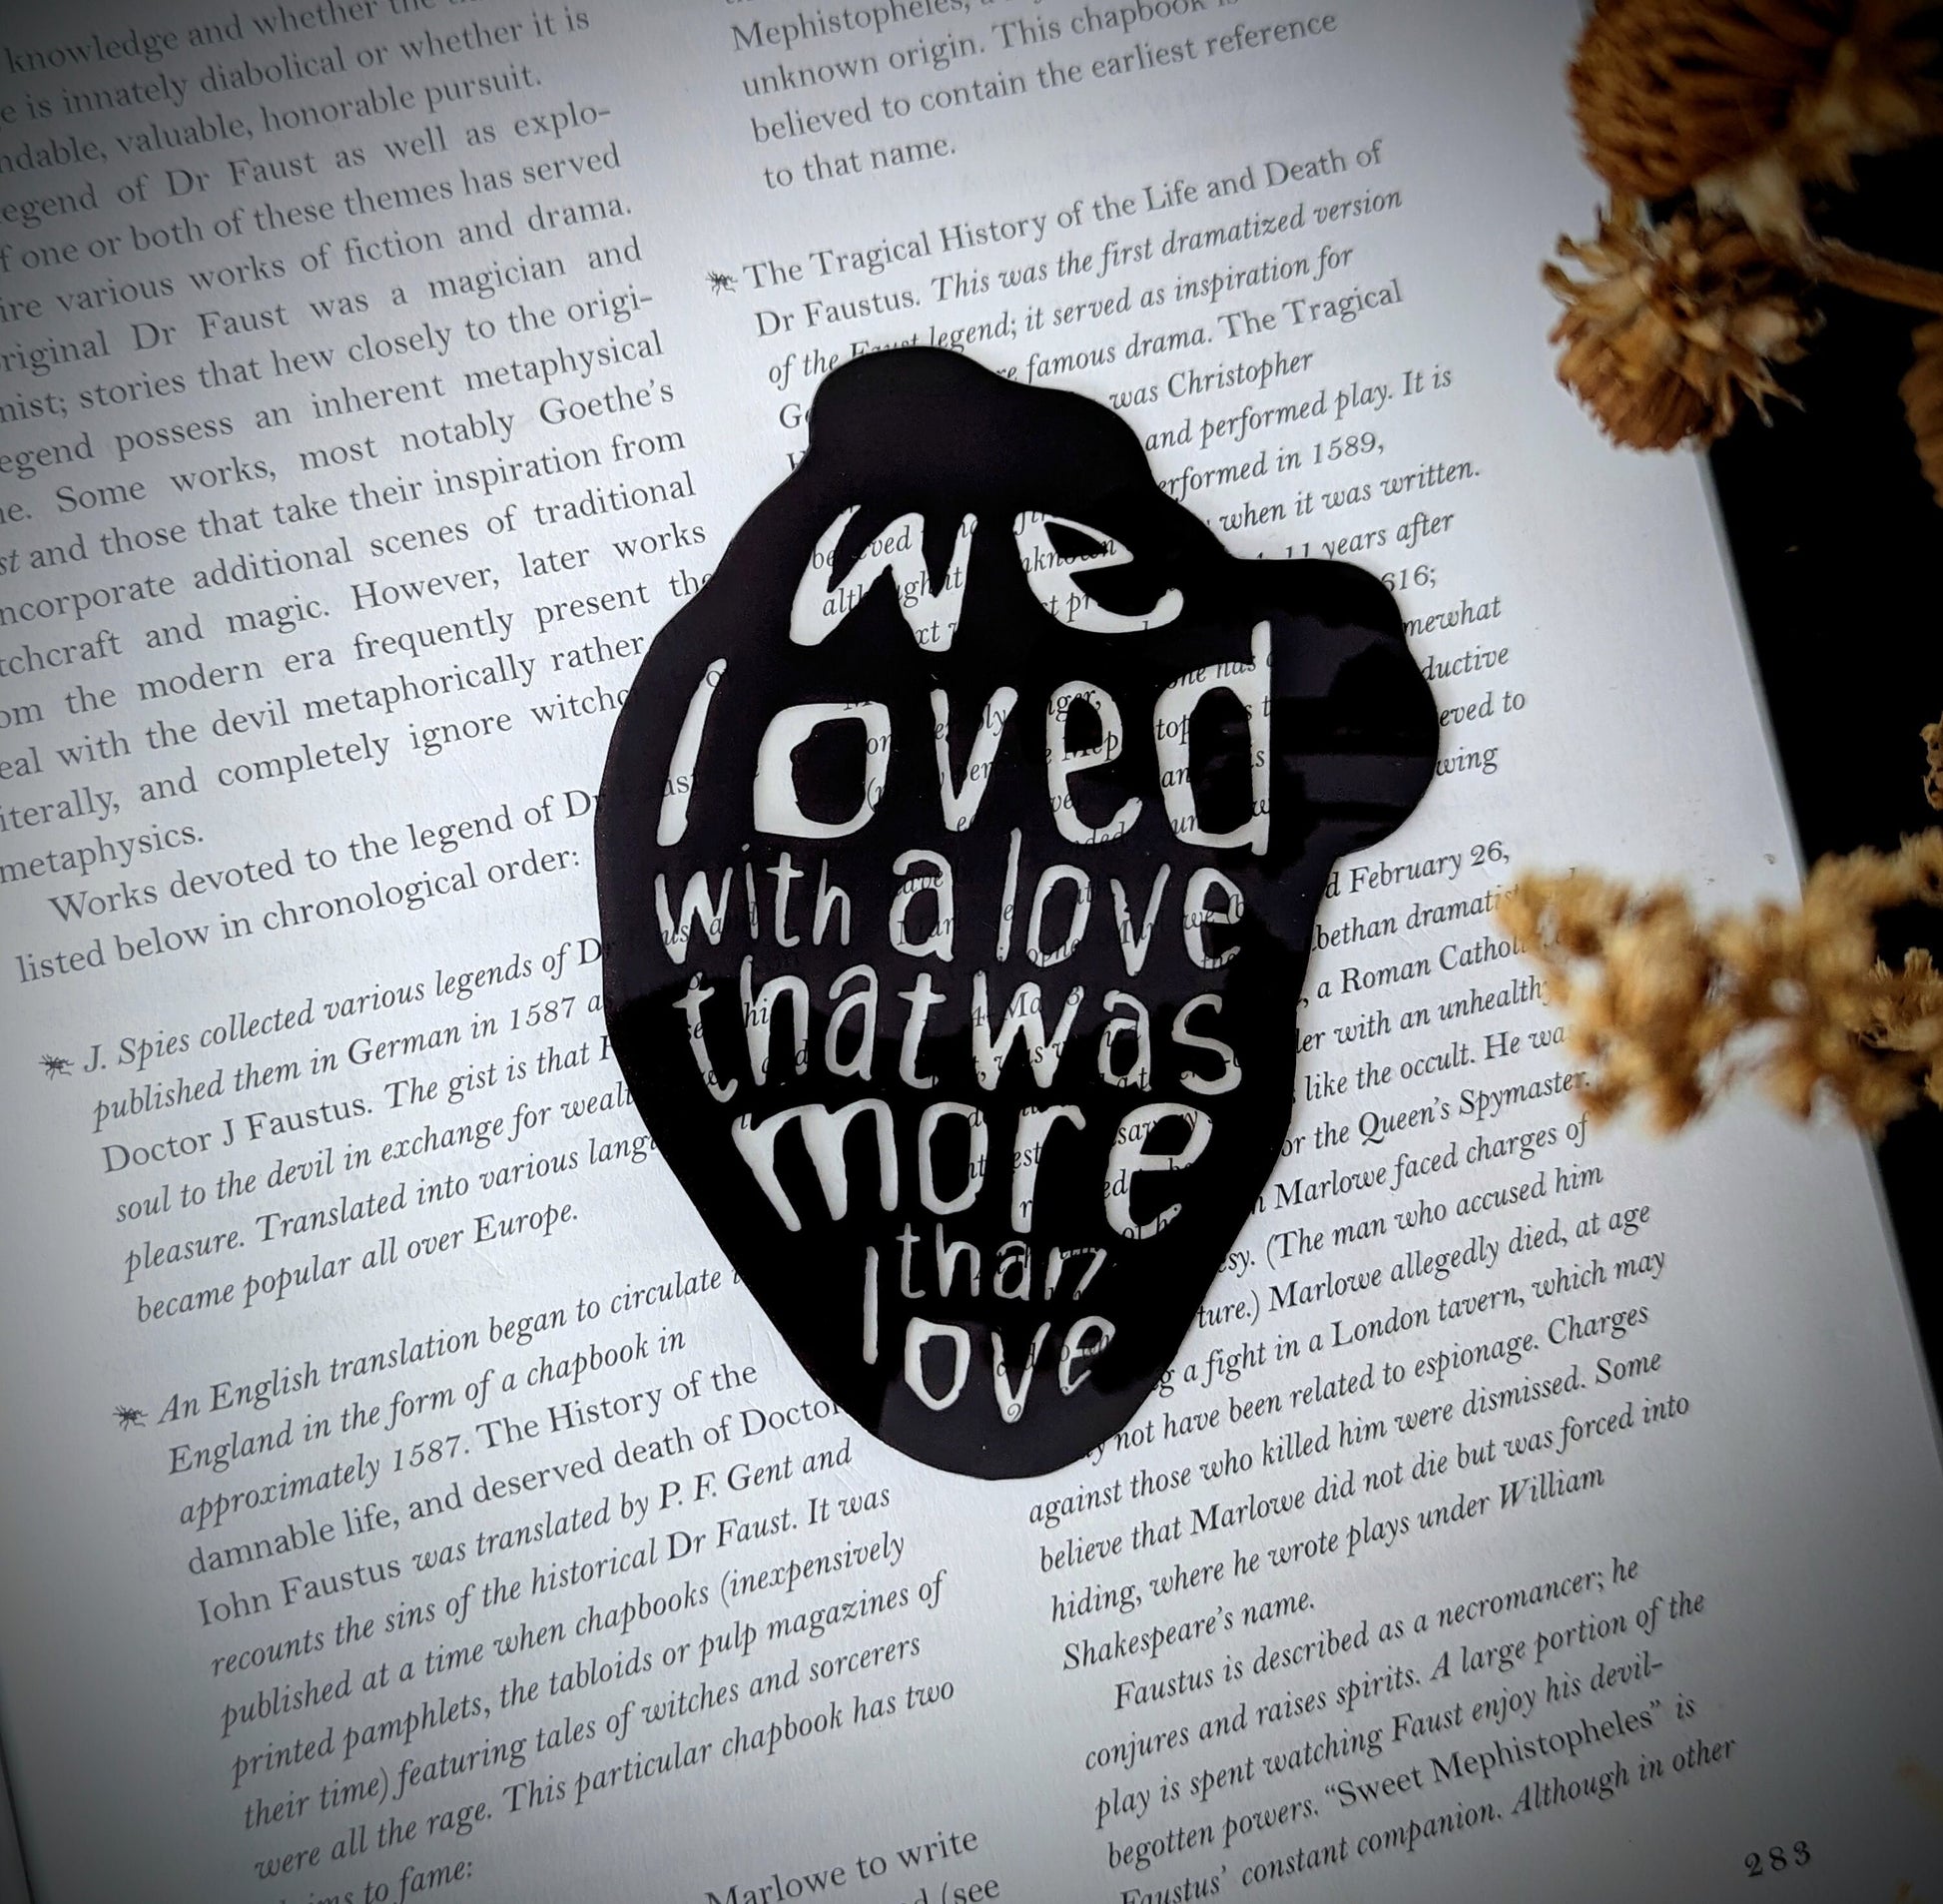 knowledge and whether the
is innately diabolical or whether it is
valuable, honorable pursuit.
legend of Dr Faust as well as explo-
one or both of these themes has served
various works of fiction and drama.
original Dr Faust was a magician and
stories that hew closely to the origi-
legend possess an inherent metaphysical
Some works, most notably Goethe's
and those that take their inspiration from
incorporate additional scenes of traditional
witchcraft and magic. However, later works
from the modern era frequently present the
deal with the devil metaphorically rather
literally, and completely ignore witchc
metaphysics.
Works devoted to the legend of Dr
listed below in chronological order:
J. Spies collected various legends of Dr
published them in German in 1587 as
Doctor J Faustus. The gist is that F
soul to the devil in exchange for wealt
pleasure. Translated into various langu
became popular all over Europe.
An English translation began to circulate
England in the form of a chapbook in
approximately 1587. The History of the
damnable life, and deserved death of Doctor
Iohn Faustus was translated by P. F. Gent and
recounts the sins of the historical Dr Faust. It was
published at a time when chapbooks (inexpensively
printed pamphlets, the tabloids or pulp magazines of
their time) featuring tales of witches and sorcerers
were all the rage. This particular chapbook has two
to fame:
Marlowe to write
(see
Mephistopheles,
unknown origin. This chapbook is
believed to contain the earliest reference
to that name.
The Tragical History of the Life and Death of
Dr Faustus. This was the first dramatized version
of the Faust legend; it served as inspiration for
famous drama. The Tragical
was Christopher
and performed play. It is
performed in 1589,
when it was written.
11 years after
1616;
somewhat
we
loved
with a love
that was
more
than
love
d February 26,
Elizabethan dramatist
, a Roman Catholic
with an unhealthy
like the occult. He was
for the Queen's Spymaster.
Marlowe faced charges of
(The man who accused him
) Marlowe allegedly died, at age
a fight in a London tavern, which may
not have been related to espionage. Charges
against those who killed him were dismissed. Some
believe that Marlowe did not die but was forced into
hiding, where he wrote plays under William
Shakespeare's name.
Faustus is described as a necromancer; he
conjures and raises spirits. A large portion of the
play is spent watching Faust enjoy his devil-
begotten powers. “Sweet Mephistopheles” is
Faustus' constant companion. Although in other
283